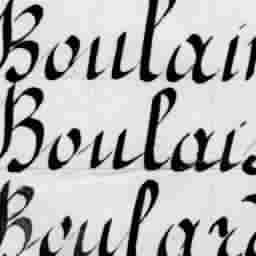 Boulain
Boulais
Boulard